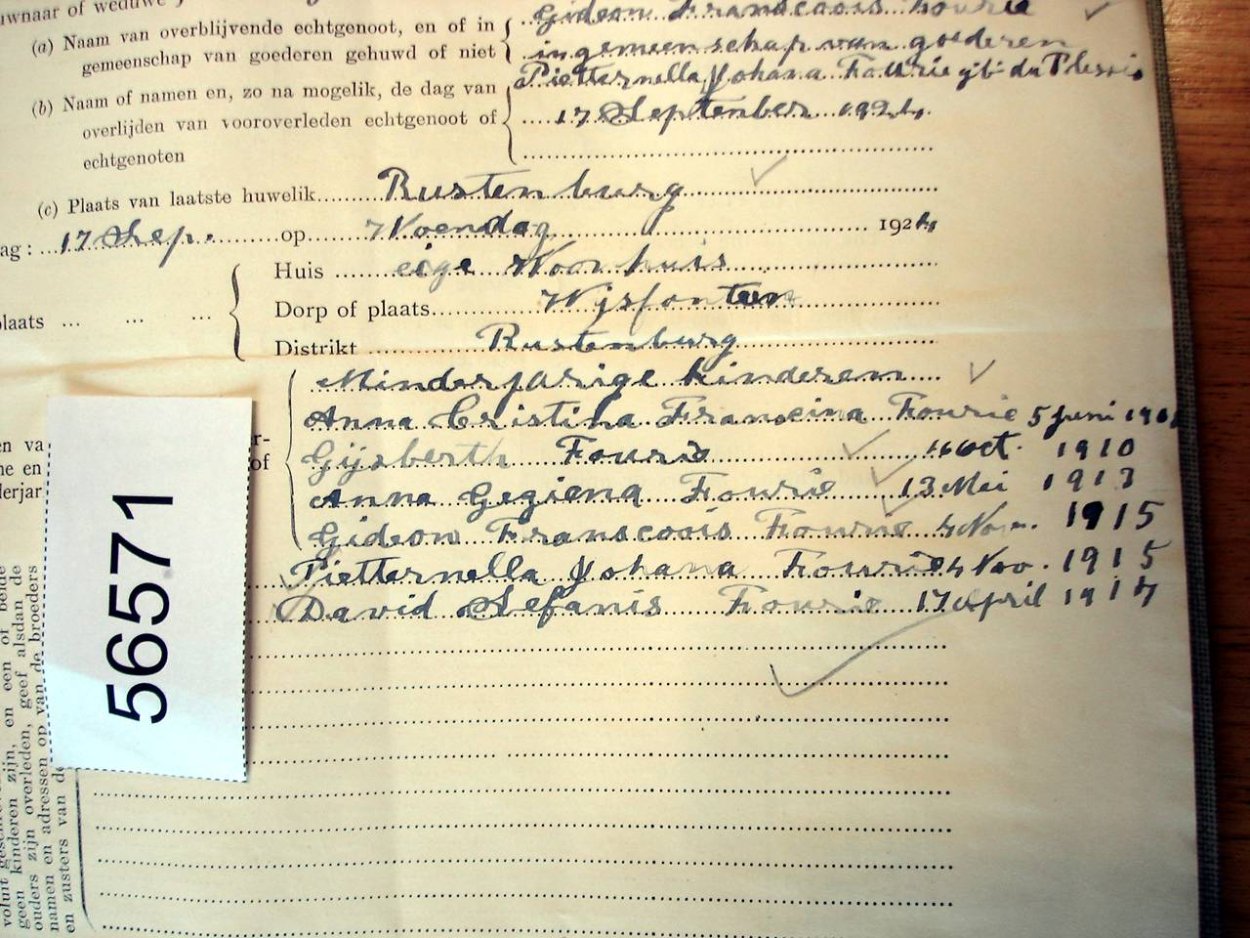 uwnaar of weduwe
(a) Naam van overblijvende echtgenoot, en of in gemeenschap van goederen gehuwd of niet
Gideon Franscoois Fourie
in gemeenschap van goederen
(b) Naam of namen en, zo na mogelik, de dag van overlijden van vooroverleden echtgenoot of echtgenoten
Pietternella Johana Fourie gib du Plessis
17 September 1924.
(c) Plaats van laatste huwelik Rustenburg
ag: 17 Sep. op Woendag 1924
Huis eige Woon huis
laats
Dorp of plaats Wysfontein
Distrikt Rustenburg
Minderjarige kinderen
Anna Cristina Franscina Fourie 5 Juni 190
Gijsberth Fourie Oct. 1910
Anna Gegiena Fourie 13 Mei 1913
Gideon Franscoois Fourie 4 Nov. 1915
Pietternella Johana Fourie 4 Nov. 1915
David Stefanis Fourie 17 April 1917
en va
r-
ne en
of
derjar
56571
voluit
geen kinderen zijn, en een of beide
ouders zijn overleden, geef alsdan de
namen en adressen op van de broeders
en zusters van de